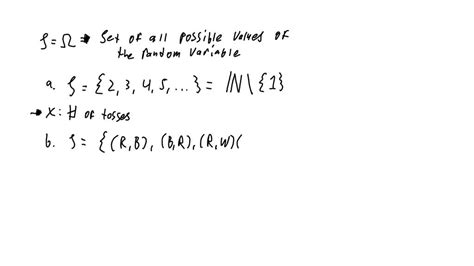 S = Ω → Set of all possible values of
the random variable
a. S = {2, 3, 4, 5, ...} = ℕ \ {1}
→ X: # of tosses
b. S = {(R,B), (B,R), (R,W)(